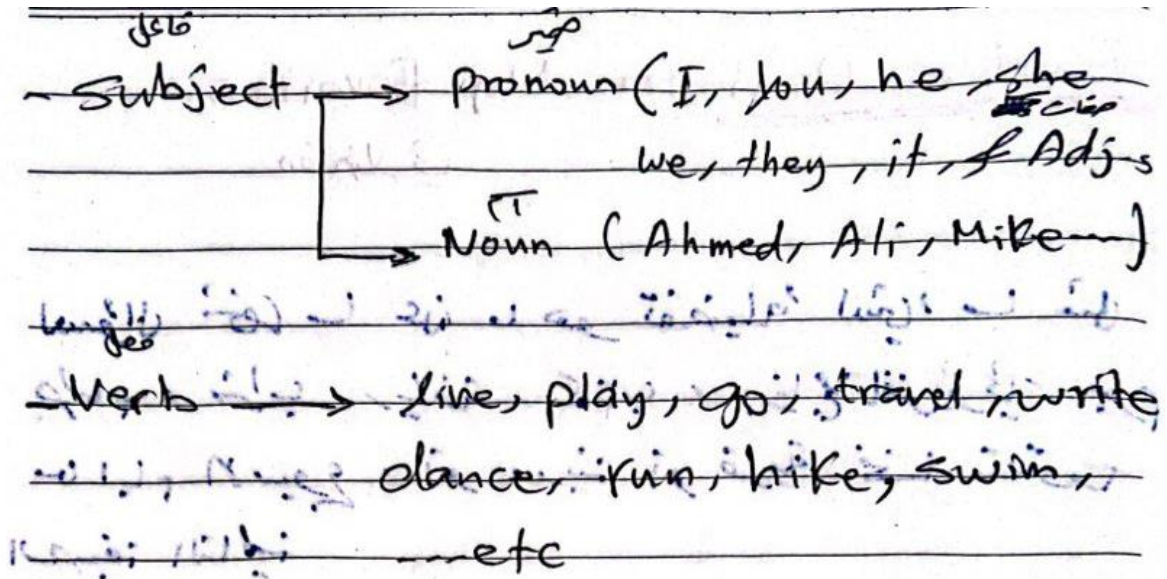 فاعل ضمير
- Subject → Pronoun (I, you, he, she
صفات
we, they, it, & Adj-s
→ Noun (Ahmed, Ali, Mike ---)
فعل
- Verb → live, play, go, travel, write
dance, run, hike, swim,
---etc